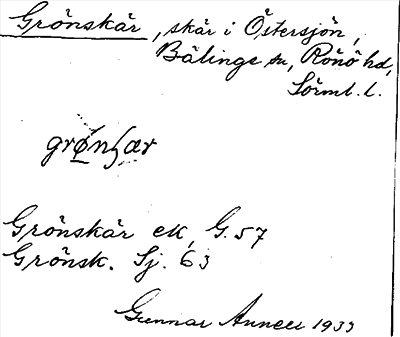 Grönskär, skär i Östersjön,
Bälinge sn, Rönö hd,
Sörml. l.
grønʃær
Grönskär ek, G. 57
Grönsk. Sj. 63
Gunnar Annell 1933